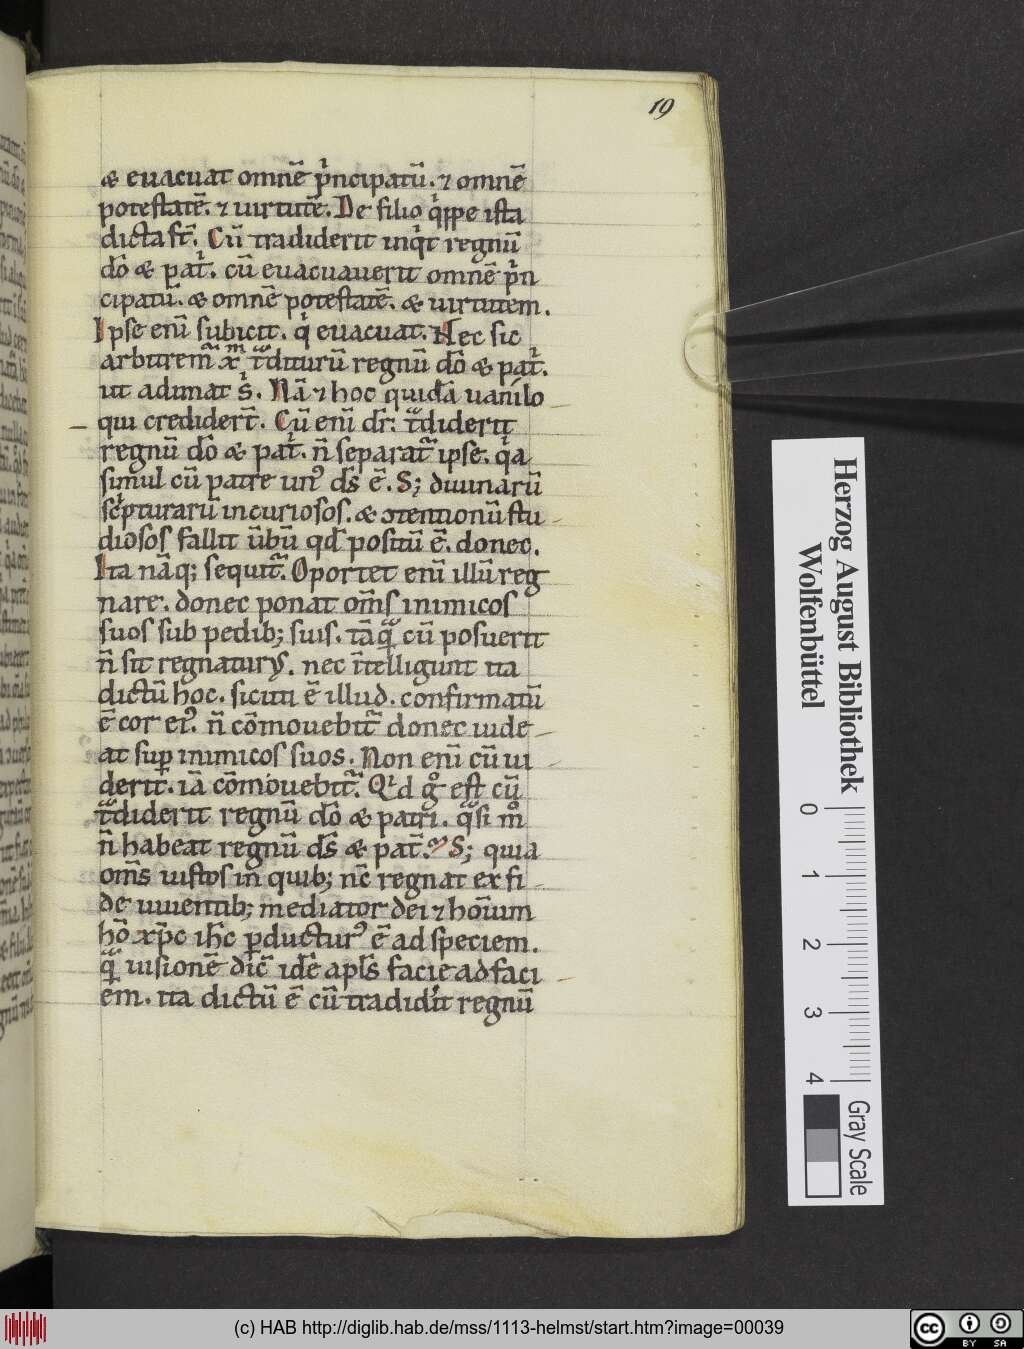 19
& euacuat omnē p̍ncipatū. ⁊ omnē
potestatē. ⁊ uirtutē. De filio q̍ppe ista
dicta sr̄. Cū tradiderit inq̍t regnū
dō & pat̍. cū euacuauerit omnē p̍n
cipatū. & omnē potestatē. & uirtutem.
Ipse enī subicit. q̍ euacuat. Nec sic
arbitremᷓ xᷠ tᷓditurū regnū dō & pat̍.
ut adimat s̍. Nā ⁊ hoc quidā uanilo
qui crediderr̄. Cū enī dr̄: tᷓdiderit
regnū dō & pat̍. n̄ separatᷓ ipse. q̍a
simul cū patre unꝰ ds̄ ē. S; diuinarū
sc̍pturarū incuriosos. & ↄtentionū stu
diosos fallit ūbū qd̄ positū ē. donec.
Ita nāq; sequitᷓ. Oportet enī illū reg
nare. donec ponat om̄s inimicos
suos sub pedib; suis. tāqᷓ cū posuerit
n̄ sit regnaturꝰ. nec ītelligunt ita
dictū hoc. sicuti ē illud. confirmatū
ē cor eiꝰ. n̄ cōmouebitᷓ donec uide
at suꝑ inimicos suos. Non enī cū ui
derit. iā cōmouebitᷓ. Qͥd gͦ est cū
tᷓdiderit regnū dō & patri. qᷓsi mͦ
n̄ habeat regnū ds̄ & pat̄. S; quia
om̄s iustos in quib; nc̄ regnat ex fi
de uiuentib; mediator dei ⁊ hoīum
hō xp̄c ih̄c ꝑducturꝰ ē ad speciem.
qᷓ uisionē dic̄ idē apl̄s facie ad faci
em. ita dictū ē cū tradid̍it regnū
Herzog August Bibliothek
Wolfenbüttel
0 1 2 3 4
Gray Scale
(c) HAB http://diglib.hab.de/mss/1113-helmst/start.htm?image=00039
cc BY SA